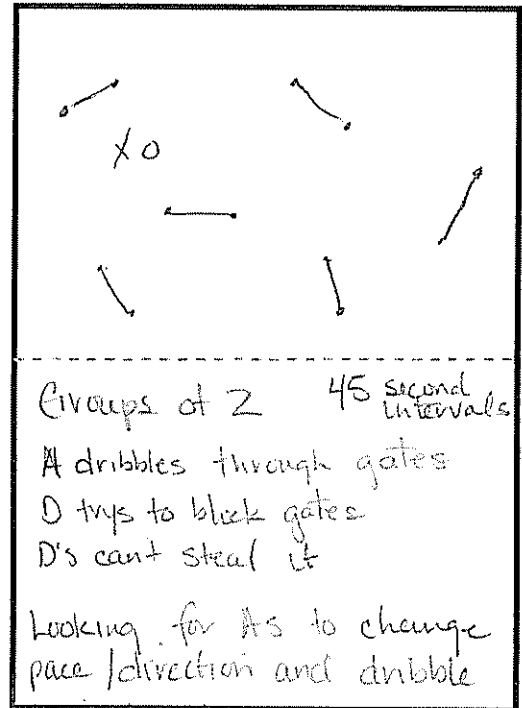 X O
Groups of 2 45 second intervals
A dribbles through gates
D trys to block gates
D's cant steal it
Looking for As to change
pace / direction and dribble